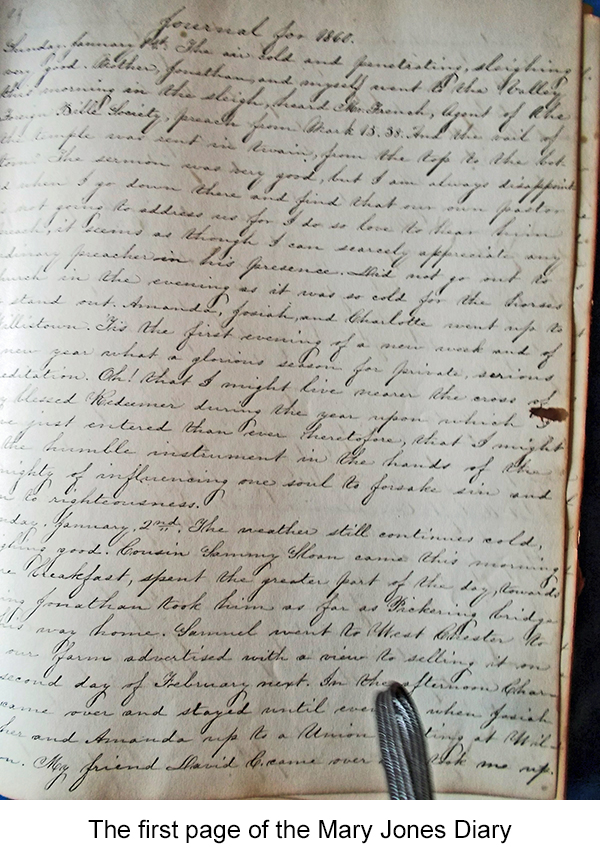 Journal for 1860.
Sunday, January 1st. The air cold and penetrating, sleighing
very good. Father, Jonathan, and myself went to the Valley
this morning in the sleigh, heard Mr. French, Agent of the
Foreign Bible Society, preach from Mark 15.38. And the vail of
the temple was rent in twain, from the top to the bot
tom. The sermon was very good, but I am always disappoint
d when I go down there and find that our own pastor
s not going to address us for I do so love to hear him
reach, it seems as though I can scarcely appreciate any
dinary preacher in his presence. Did not go out to
hurch in the evening as it was so cold for the horses
stand out. Amanda, Josiah, and Charlotte went up to
llistown. Tis the first evening of a new week and of
new year what a glorious season for private, serious
editation. Oh! that I might live nearer the cross of
y blessed Redeemer during the year upon which I
ve just entered than ever heretofore, that I might
the humble instrument in the hands of the
mighty of influencing one soul to forsake sin and
n to righteousness.
nday, January, 2nd. The weather still continues cold,
ghing good. Cousin Sammy Sloan came this morning
re breakfast, spent the greater part of the day, towards
ing Jonathan took him as far as Pickering bridge
his way home. Samuel went to West Chester to
our farm advertised with a view to selling it on
second day of February next. In the afternoon Charn
came over and stayed until even when Josiah
her and Amanda up to a Union ting at Wil
on. My friend David C. came over took me up.
The first page of the Mary Jones Diary